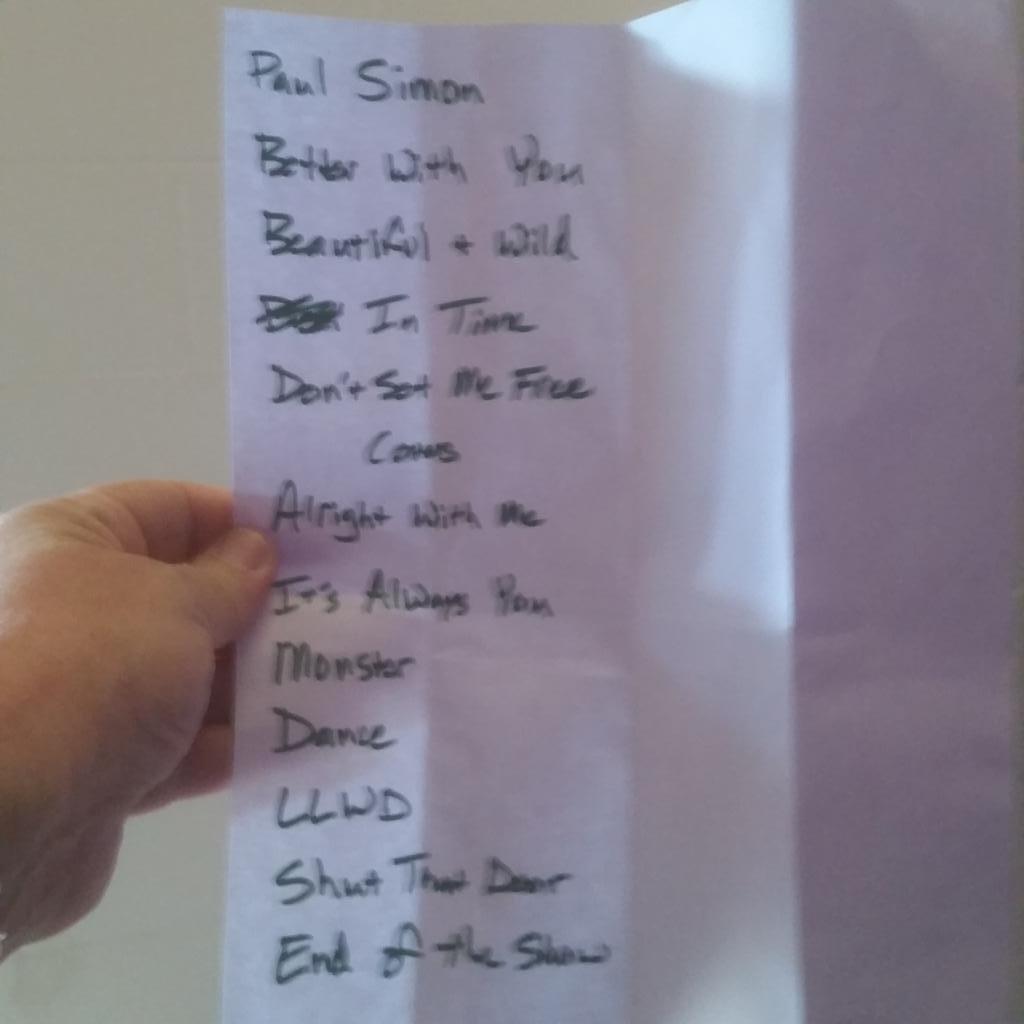 Paul Simon
Better With You
Beautiful + Wild
In Time
Don't Set Me Free
Covers
Alright With Me
It's Always You
Monster
Dance
LLWD
Shut That Door
End of the Show